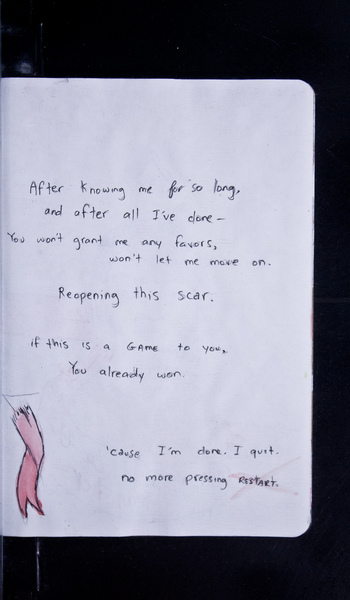 After knowing me for so long,
and after all I've done –
You won't grant me any favors,
won't let me move on.
Reopening this scar.
if this is a GAME to you,
You already won.
'cause I'm done. I quit.
no more pressing RESTART.